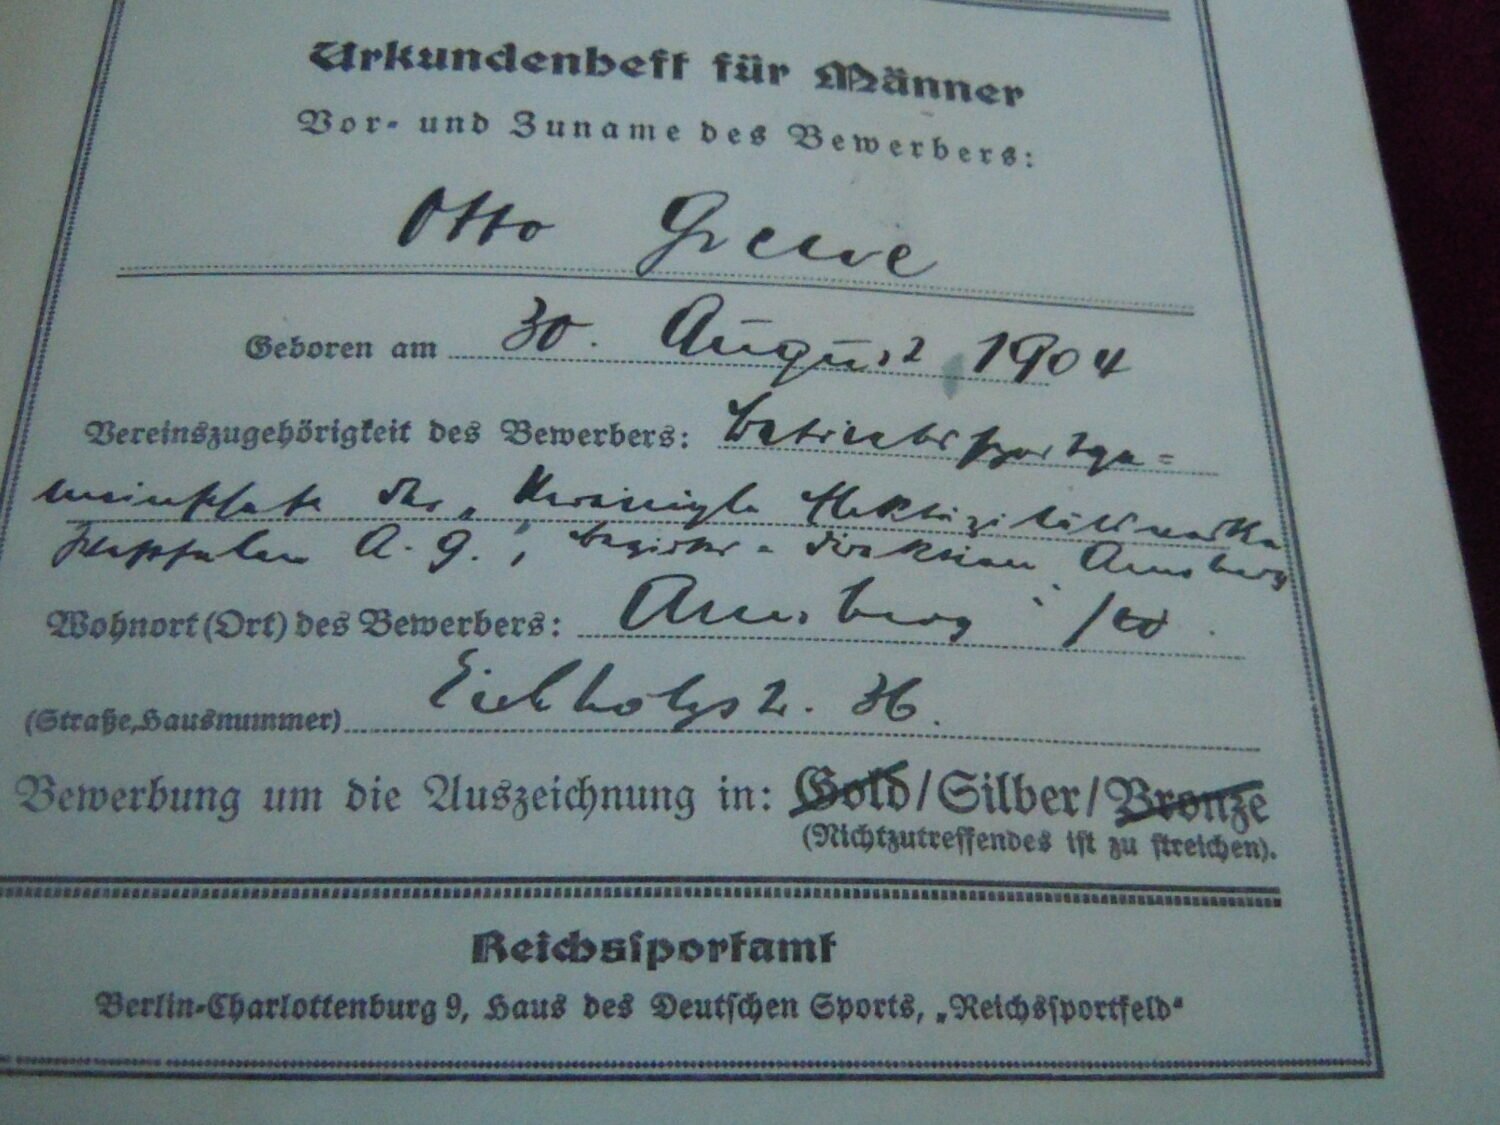 Urkundenheft für Männer
Vor- und Zuname des Bewerbers:
Otto Grewe
Geboren am 30. August 1904
Vereinszugehörigkeit des Bewerbers: Betriebssportge=
meinschaft der „Vereinigte Elektrizitätswerke
Westfalen A. G.", Bezirks-Direktion Arnsberg
Wohnort (Ort) des Bewerbers: Arnsberg
(Straße, Hausnummer) Eichholzstr. 36.
Bewerbung um die Auszeichnung in: Gold/Silber/Bronze
(Nichtzutreffendes ist zu streichen).
Reichssportamt
Berlin-Charlottenburg 9, Haus des Deutschen Sports, „Reichssportfeld“